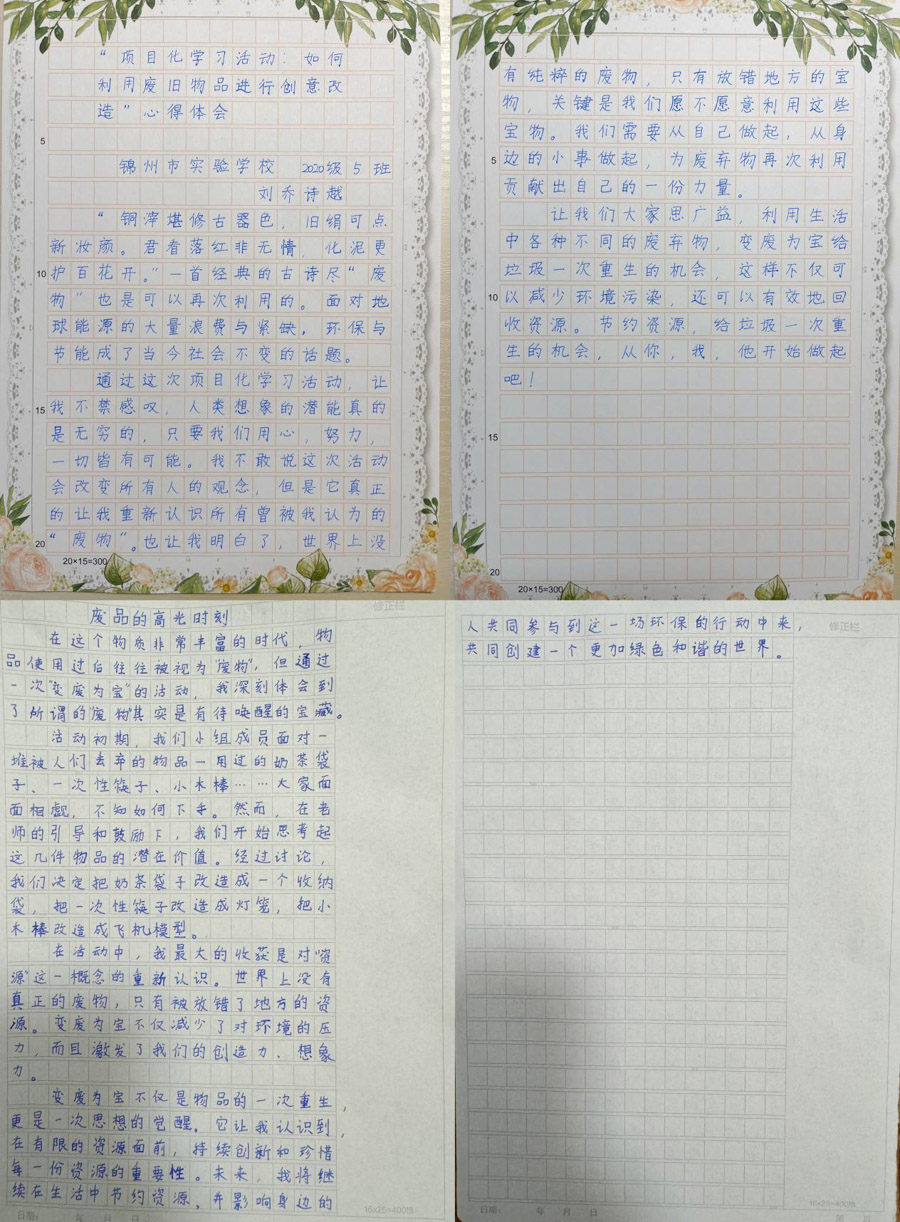 “项目化学习活动：如何
利用废旧物品进行创意改
造”心得体会
5
锦州市实验学校 2020级5班
刘乔诗越
“铜滓堪修古器色，旧绢可点
新妆颜。君看落红非无情，化泥更
10
护百花开。”一首经典的古诗尽“废
物”也是可以再次利用的。面对地
球能源的大量浪费与紧缺，环保与
节能成了当今社会不变的话题。
通过这次项目化学习活动，让
15
我不禁感叹，人类想象的潜能真的
是无穷的，只要我们用心，努力，
一切皆有可能。我不敢说这次活动
会改变所有人的观念，但是它真正
的让我重新认识所有曾被我认为的
20
“废物”。也让我明白了，世界上没
20×15=300
有纯粹的废物，只有放错地方的宝
物，关键是我们愿不愿意利用这些
宝物。我们需要从自己做起，从身
5
边的小事做起，为废弃物再次利用
贡献出自己的一份力量。
让我们大家思广益，利用生活
中各种不同的废弃物，变废为宝给
垃圾一次重生的机会，这样不仅可
10
以减少环境污染，还可以有效地回
收资源。节约资源，给垃圾一次重
生的机会，从你，我，他开始做起
吧！
15
20
20×15=300
废品的高光时刻
修正栏
在这个物质非常丰富的时代，物
品使用过后往往被视为“废物”，但通过
一次“变废为宝”的活动，我深刻体会到
了所谓的“废物”其实是有待唤醒的宝藏。
活动初期，我们小组成员面对一
堆被人们丢弃的物品—用过的奶茶袋
子、一次性筷子、小木棒……大家面
面相觑，不知如何下手。然而，在老
师的引导和鼓励下，我们开始思考起
这几件物品的潜在价值。经过讨论，
我们决定把奶茶袋子改造成一个收纳
袋，把一次性筷子改造成灯笼，把小
木棒改造成飞机模型。
在活动中，我最大的收获是对“资
源”这一概念的重新认识。世界上没有
真正的废物，只有被放错了地方的资
源。变废为宝不仅减少了对环境的压
力，而且激发了我们的创造力、想象
力。
变废为宝不仅是物品的一次重生，
更是一次思想的觉醒。它让我认识到，
在有限的资源面前，持续创新和珍惜
每一份资源的重要性。未来，我将继
续在生活中节约资源，并影响身边的
日期： 年 月 日
16x25=400格
人共同参与到这一场环保的行动中来，
修正栏
共同创建一个更加绿色和谐的世界。
16x25=400格
日期： 年 月 日